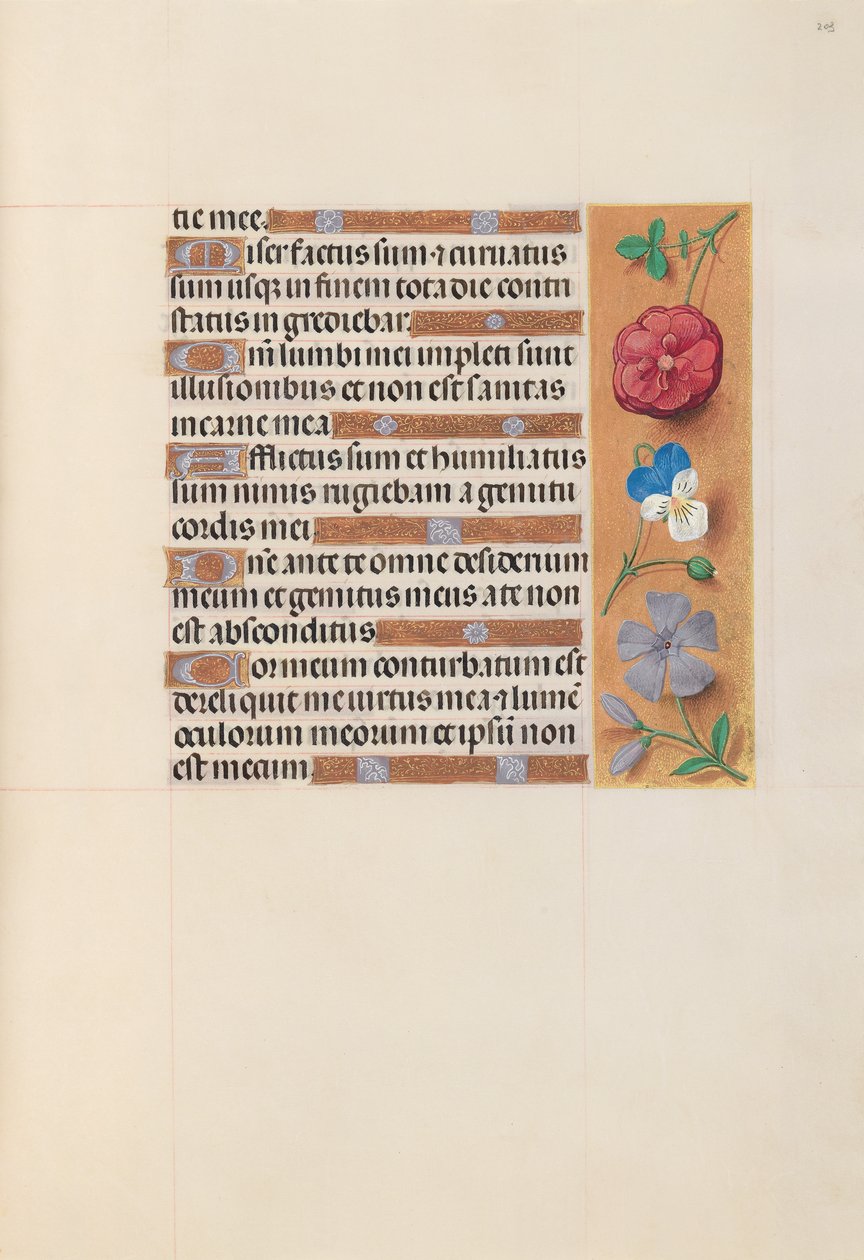 203
tie mee.
Miser factus sum ⁊ curuatus
sum usqꝫ in finem tota die contri
status in grediebar.
Qm̄ lumbi mei impleti sunt
illusionibus et non est sanitas
in carne mea
Afflictus sum et humiliatus
sum nimis rugiebam a gemitu
cordis mei.
Dn̄e ante te omne desiderium
meum et gemitus meus a te non
est absconditus
Cor meum conturbatum est
dereliquit me uirtus mea ⁊ lumē
oculorum meorum et ipsū non
est mecum.